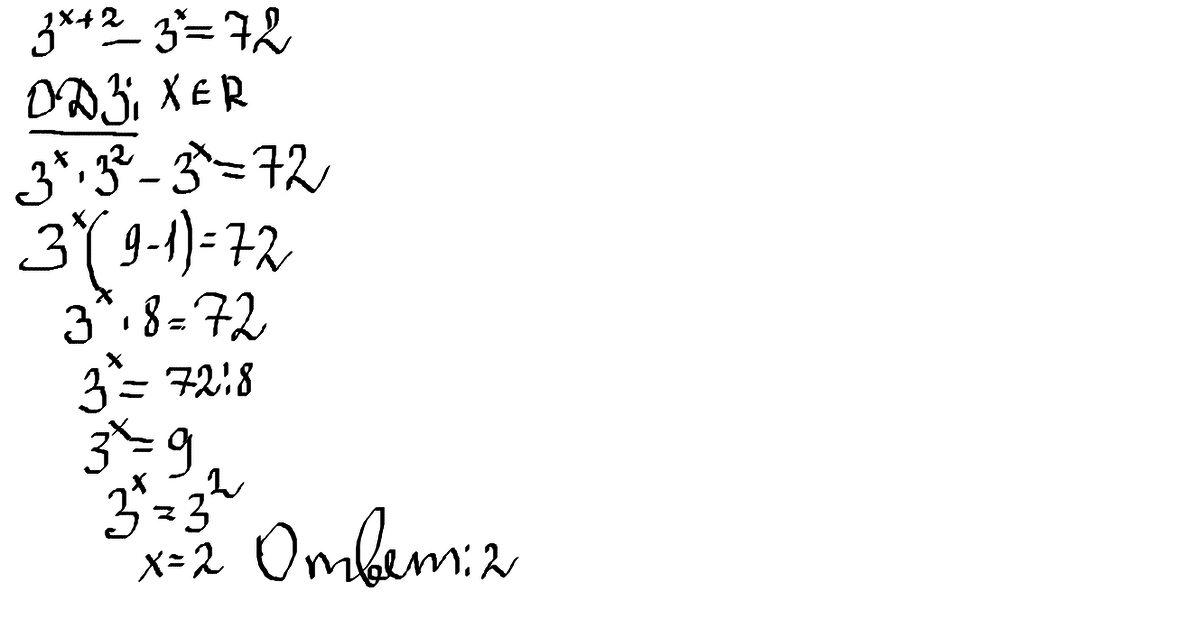 3^{x+2} - 3^x = 72
ОДЗ: x ∈ R
3^x · 3^2 - 3^x = 72
3^x (9-1) = 72
3^x · 8 = 72
3^x = 72:8
3^x = 9
3^x = 3^2
x = 2 Ответ: 2